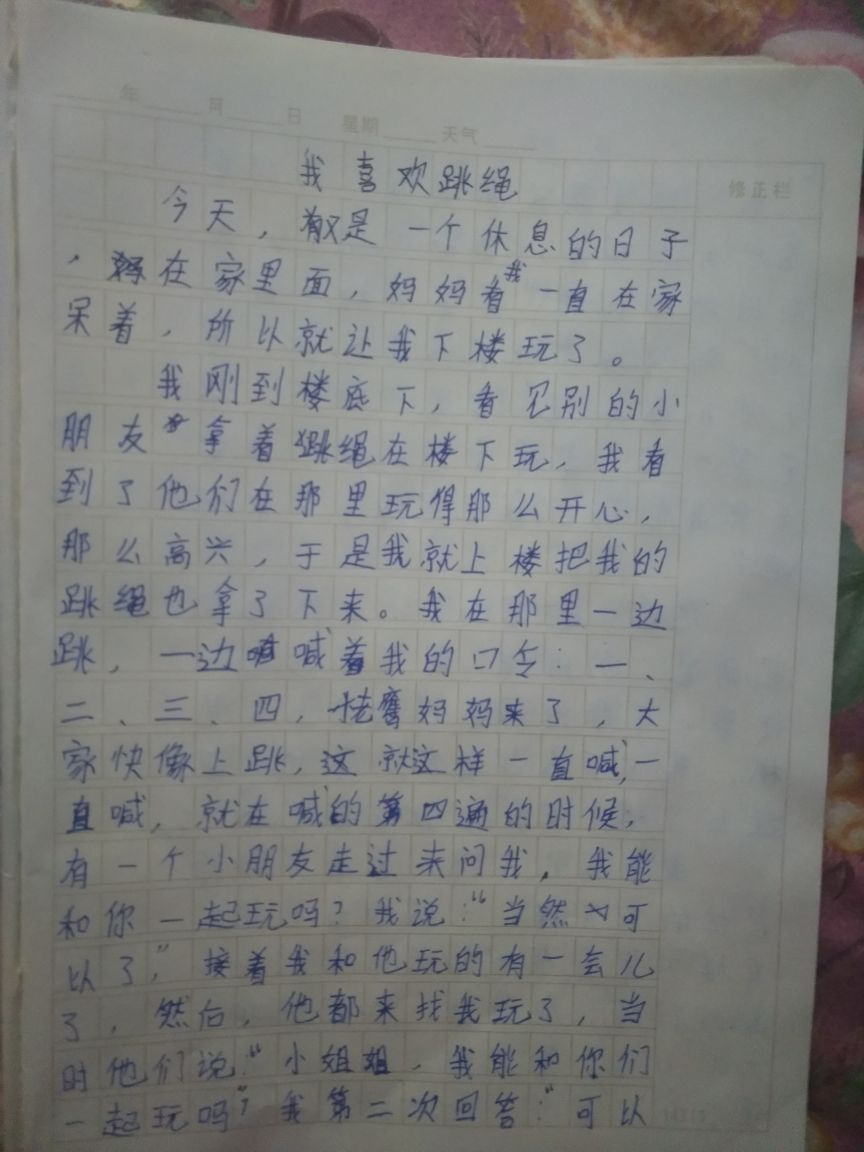 年 月 日 星期 天气
修正栏
我喜欢跳绳
今天，又是一个休息的日子
，在家里面，妈妈看我一直在家
呆着，所以就让我下楼玩了。
我刚到楼底下，看见别的小
朋友拿着跳绳在楼下玩，我看
到了他们在那里玩得那么开心，
那么高兴，于是我就上楼把我的
跳绳也拿了下来。我在那里一边
跳，一边喊着我的口令：一、
二、三、四，老鹰妈妈来了，大
家快像上跳，这就这样一直喊，一
直喊，就在喊的第四遍的时候，
有一个小朋友走过来问我，我能
和你一起玩吗？我说：“当然可
以了，”接着我和他玩的有一会儿
了，然后，他都来找我玩了，当
时他们说：“小姐姐，我能和你们
一起玩吗”？我第二次回答：“可以